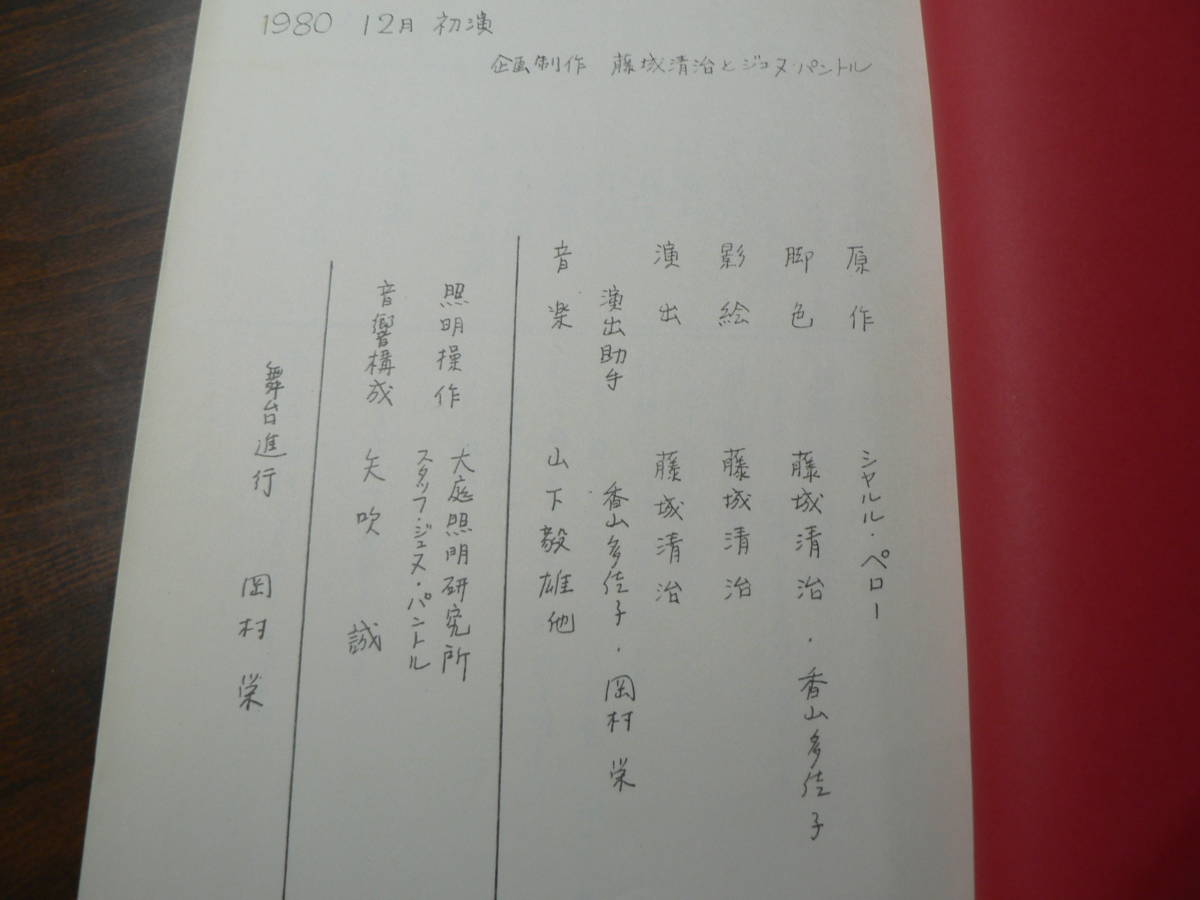 1980 12月 初演
企画制作 藤城清治とジュヌ・パントル
原作 シャルル・ペロー
脚色 藤城清治・香山多佳子
影絵 藤城清治
演出 藤城清治
演出助手 香山多佳子・岡村栄
音楽 山下毅雄他
照明操作 大庭照明研究所
スタッフ・ジュヌ・パントル
音響構成 矢吹誠
舞台進行 岡村栄